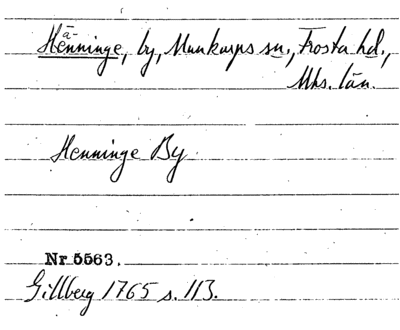 ä-
Henninge, by, Munkarps sn., Frosta hd.,
Mhs. län.
Henninge By
Nr 5563.
Gillberg 1765 s. 113.